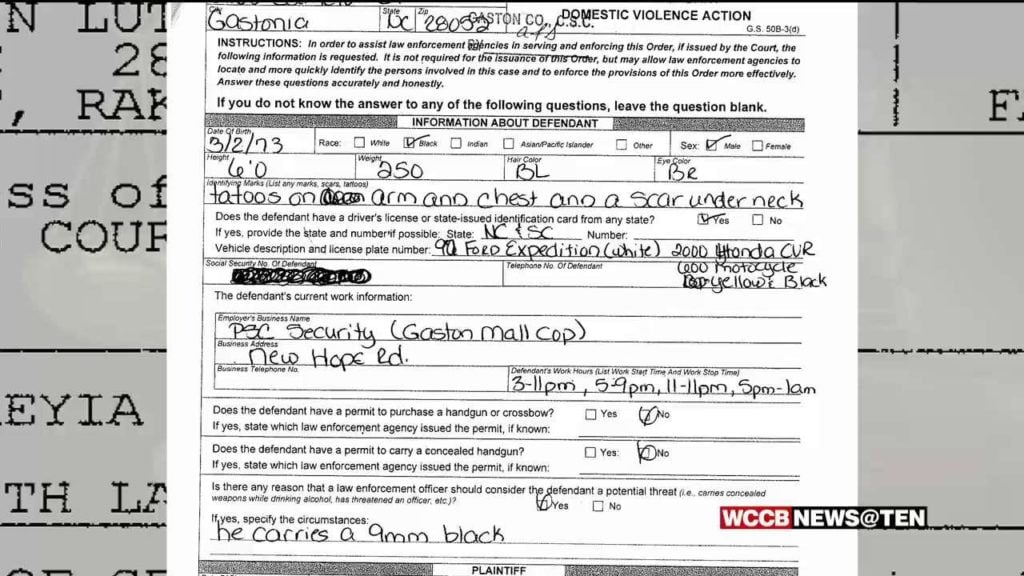 N LUT
Gastonia
State NC Zip 28052
GASTON CO., C.S.C.
DOMESTIC VIOLENCE ACTION
28
G.S. 50B-3(d)
INSTRUCTIONS: In order to assist law enforcement agencies in serving and enforcing this Order, if issued by the Court, the
following information is requested. It is not required for the issuance of this Order, but may allow law enforcement agencies to
locate and more quickly identify the persons involved in this case and to enforce the provisions of this Order more effectively.
Answer these questions accurately and honestly.
, RAK
If you do not know the answer to any of the following questions, leave the question blank.
INFORMATION ABOUT DEFENDANT
Date Of Birth
3/2/73 Race: White Black Indian Asian/Pacific Islander Other Sex: Male Female
Height Weight Hair Color Eye Color
6'0 250 BL Br
Identifying Marks (List any marks, scars, tattoos)
ss of
tatoos on arm and chest and a scar under neck
Does the defendant have a driver's license or state-issued identification card from any state? Yes No
COUR
If yes, provide the state and number if possible: State: NC & SC Number:
Vehicle description and license plate number: Ford Expedition (white) 2000 Honda CVR
Social Security No. Of Defendant Telephone No. Of Defendant
600 Motocycle
Yellow & Black
The defendant's current work information:
Employer's Business Name
PSC Security (Gaston Mall Cop)
Business Address
New Hope Rd.
Business Telephone No. Defendant's Work Hours (List Work Start Time And Work Stop Time)
3-11pm, 5-9pm, 11-11pm, 5pm-1am
EYIA
Does the defendant have a permit to purchase a handgun or crossbow? Yes No
If yes, state which law enforcement agency issued the permit, if known:
Does the defendant have a permit to carry a concealed handgun? Yes: No
If yes, state which law enforcement agency issued the permit, if known:
TH LA
Is there any reason that a law enforcement officer should consider the defendant a potential threat (i.e., carries concealed
weapons while drinking alcohol, has threatened an officer, etc.)? Yes No
If yes, specify the circumstances:
he carries a 9mm black
WCCB NEWS@TEN
PLAINTIFF